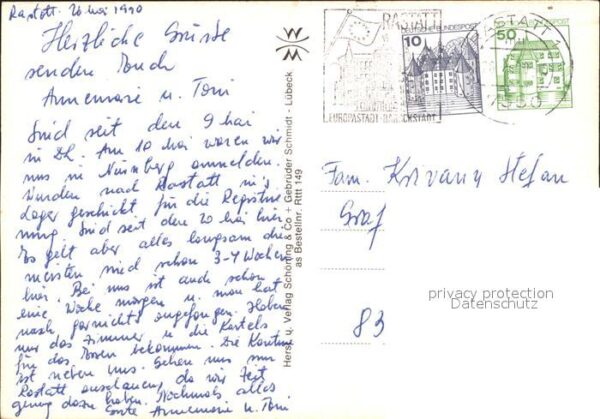 Rastatt. 26 mai 1990
Herzliche Grüsse
senden Euch
Annemarie u. Toni
Sind seit den 9 mai
in D. Am 10 mai waren wir
uns in Nürnberg anmelden.
Wurden nach Rastatt in's
Lager geschickt für die Registrie
rung. Sind seit den 20 mai hier
Es geht aber alles langsam die
meisten sind schon 3-4 Wochen
hier. Bei uns ist auch schon
eine Woche morgen u. man hat
noch garnichts angefangen. Haben
nur das Zimmer u. die
für das Essen bekommen. Die Kantine
ist neben uns. Gehen uns nun
Rastatt anschauen, da wir Zeit
genug dazu haben. Nochmals alles
Gute Annemarie u. Toni
Herst. u. Verlag Schöning & Co + Gebrüder Schmidt - Lübeck
as Bestellnr. Rttt 149
RASTATT
EUROPASTADT-BAROCKSTADT
10
BUNDESPOST
RASTATT
50
Fam. Krivany Stefan
Graf
83
privacy protection
Datenschutz